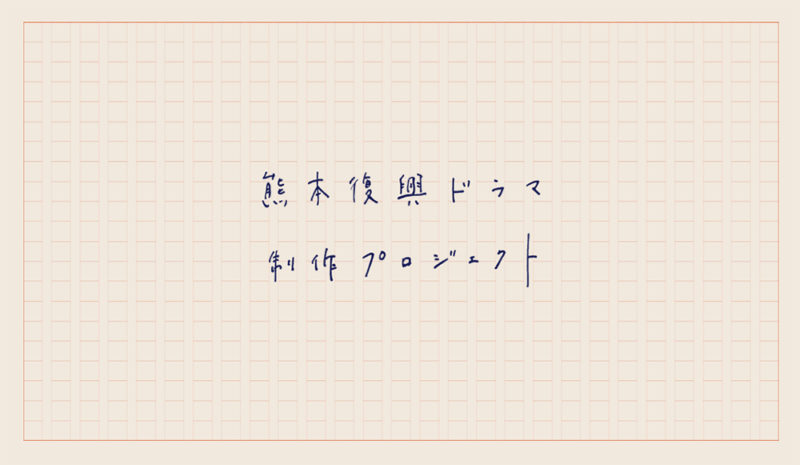 熊本復興ドラマ
制作プロジェクト